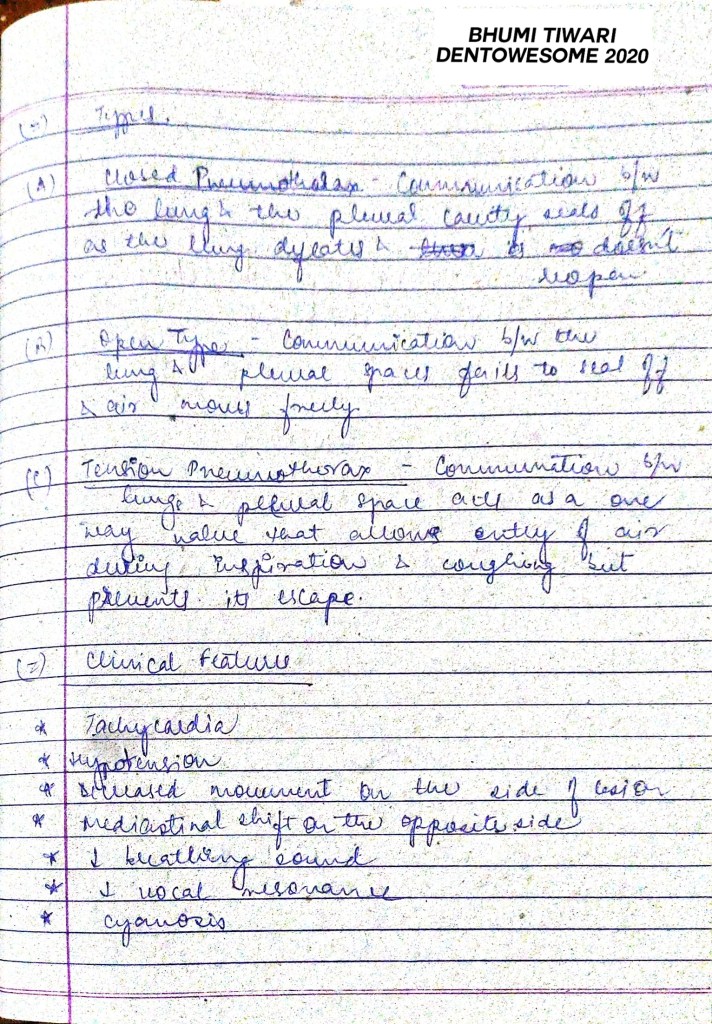 BHUMI TIWARI
DENTOWESOME 2020
(=) Types.
(A) Closed Pneumothorax - Communication b/w
the lung & the pleural cavity seals off
as the lung & is doesn't
reopen.
(B) Open Type - Communication b/w the
lung & pleural spaces fails to seal off
& air moves freely
(C) Tension Pneumothorax - Communication b/w
lungs & pleural space acts as a one
way valve that allows entry of air
during inspiration & coughing but
prevents its escape.
(=) Clinical Feature
* Tachycardia
* Hypotension
* Decreased movement on the side of lesion
* Mediastinal shift on the opposite side
* ↓ breathing sound
* ↓ vocal resonance
* cyanosis